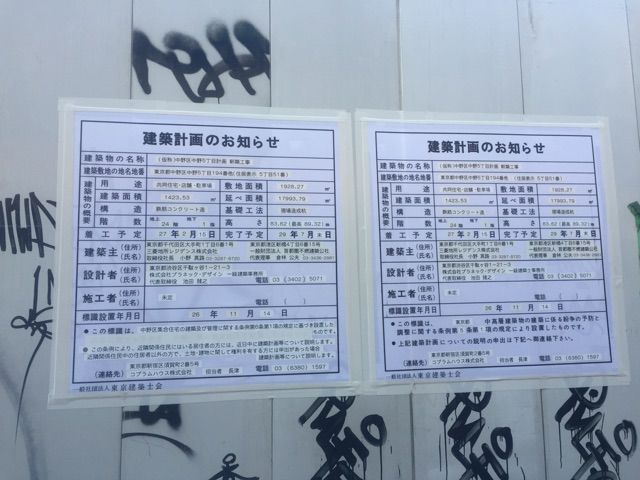 建築計画のお知らせ
建築物の名称 (仮称)中野区中野5丁目計画 新築工事
建築敷地の地名地番 東京都中野区中野5丁目194番他(住居表示 5丁目51番)
建築物の概要
用途 共同住宅・店舗・駐車場 敷地面積 1928.27 ㎡
建築面積 1423.53 ㎡ 延べ面積 17993.79 ㎡
構造 鉄筋コンクリート造 基礎工法 現場造成杭
階数 地上 24 階 地下 1 階 高さ 83.62 (最高 89.32) m
着工予定 27 年 2 月 15 日 完了予定 29 年 7 月 末 日
建築主 (住所) (氏名) 東京都千代田区大手町1丁目6番1号 三菱地所レジデンス株式会社 取締役社長 小野 真路 03-3287-8720
東京都港区新橋4丁目6番15号 一般財団法人 首都圏不燃建築公社 理事長 倉林 公夫
設計者 (住所) (氏名) 東京都渋谷区千駄ヶ谷1-21-3
株式会社プラネック・デザイン 一級建築士事務所
代表取締役 池田 隆之 電話 03 (3402) 5071
施工者 (住所) (氏名) 未定
電話 ( )
標識設置年月日 26 年 11 月 14 日
●この標識は、中野区集合住宅の建築及び管理に関する条例第6条第1項の規定に基づき設置したものです。
●この条例により、近隣関係住民にはる居住者の方には、近日中に建築計画等について説明します。
近隣関係住民の住居者以外の方で、土地・建物に関して権利を有する方には申出があった場合に
建築計画等について説明します。
(連絡先) 東京都新宿区須賀町2番5号 コプラムハウス株式会社 担当者 長津 電話 03 (6380) 1597
一般社団法人 東京建築士会
建築計画のお知らせ
建築物の名称 (仮称)中野区中野5丁目計画 新築工事
建築敷地の地名地番 東京都中野区中野5丁目194番他 (住居表示 5丁目51番)
建築物の概要
用途 共同住宅・店舗・駐車場 敷地面積 1928.27 ㎡
建築面積 1423.53 ㎡ 延べ面積 17993.79 ㎡
構造 鉄筋コンクリート造 基礎工法 現場造成杭
階数 地上 24 階 地下 1 階 高さ 83.62 (最高 89.32) m
着工予定 27 年 2 月 15 日 完了予定 29 年 7 月 末 日
建築主 (住所) (氏名) 東京都千代田区大手町1丁目6番1号 三菱地所レジデンス株式会社 取締役社長 小野 真路 03-3287-8720
東京都港区新橋4丁目6番15号 一般財団法人 首都圏不燃建築公社 理事長 倉林 公夫
設計者 (住所) (氏名) 東京都渋谷区千駄ヶ谷1-21-3
株式会社プラネック・デザイン 一級建築士事務所
代表取締役 池田 隆之 電話 03 (3402) 5071
施工者 (住所) (氏名) 未定
電話 ( )
標識設置年月日 26 年 11 月 14 日
●この標識は、中高層建築物の建築に係る紛争の予防と
調整に関する条例第5条第1項の規定により設置したものです。
●上記建築計画についての説明の申出は下記へ御連絡下さい。
(連絡先) 東京都新宿区須賀町2番5号 コプラムハウス株式会社 担当者 長津 電話 03 (6380) 1597
一般社団法人 東京建築士会